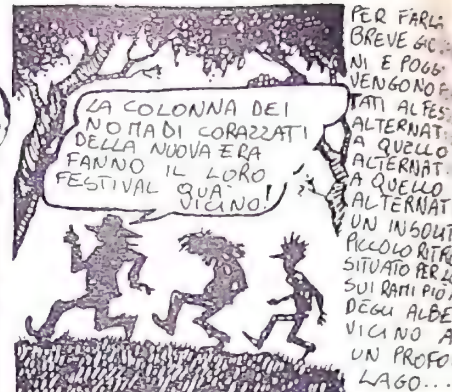 LA COLONNA DEI
NOMADI CORAZZATI
DELLA NUOVA ERA
FANNO IL LORO
FESTIVAL QUA'
VICINO!
PER FARLA
BREVE
NI E POGG
VENGONO
TATI AL FES
ALTERNAT
A QUELLO
ALTERNAT
A QUELLO
ALTERNAT
UN INSOLIT
PICCOLO
SITUATO PER
SUI RAMI PIÙ
DEGLI ALBE
VICINO A
UN PROFO
LAGO...